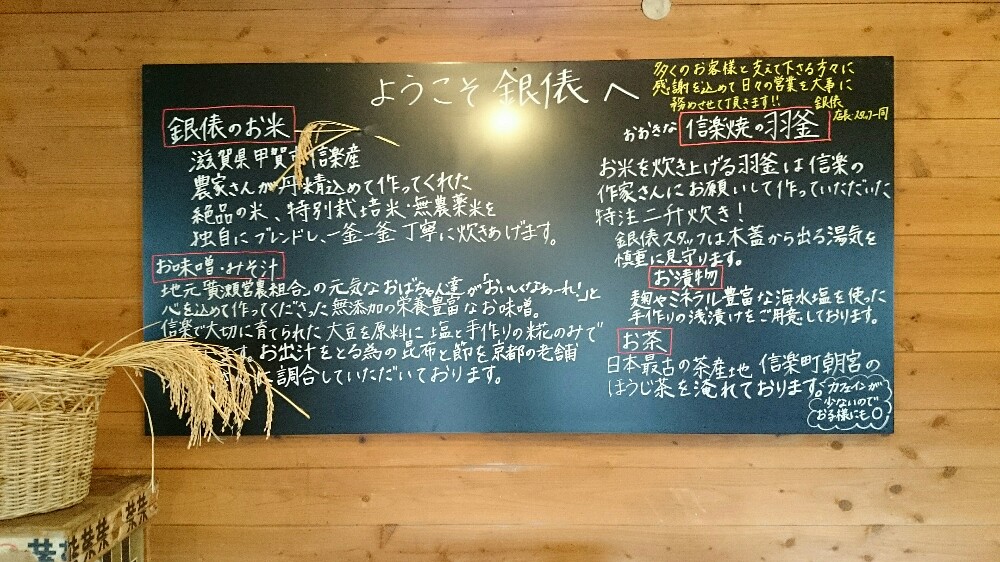 ようこそ 銀俵 へ
多くのお客様と支えて下さる方々に
感謝を込めて日々の営業を大事に
務めさせて頂きます!! 銀俵
店長・スタッフ一同
銀俵のお米
滋賀県甲賀市信楽産
農家さんが丹精込めて作ってくれた
絶品の米、特別栽培米・無農薬米を
独自にブレンドし、一釜一釜丁寧に炊きあげます。
お味噌・みそ汁
地元"黄瀬営農組合"の元気なおばちゃん達が「おいしくなぁーれ!」と
心を込めて作ってくださった無添加の栄養豊富なお味噌。
信楽で大切に育てられた大豆を原料に上塩と手作りの糀のみで
す。お出汁をとる為の昆布と節を京都の老舗
に調合していただいております。
おおきな 信楽焼の羽釜
お米を炊き上げる羽釜は信楽の
作家さんにお願いして作っていただいた
特注二升炊き!
銀俵スタッフは木蓋から出る湯気を
慎重に見守ります。
お漬物
麹やミネラル豊富な海水塩を使った
手作りの浅漬けをご用意しております。
お茶
日本最古の茶産地 信楽町朝宮の
ほうじ茶を淹れております。
カフェインが
少ないので
お子様にも○
茶茶
茶茶茶